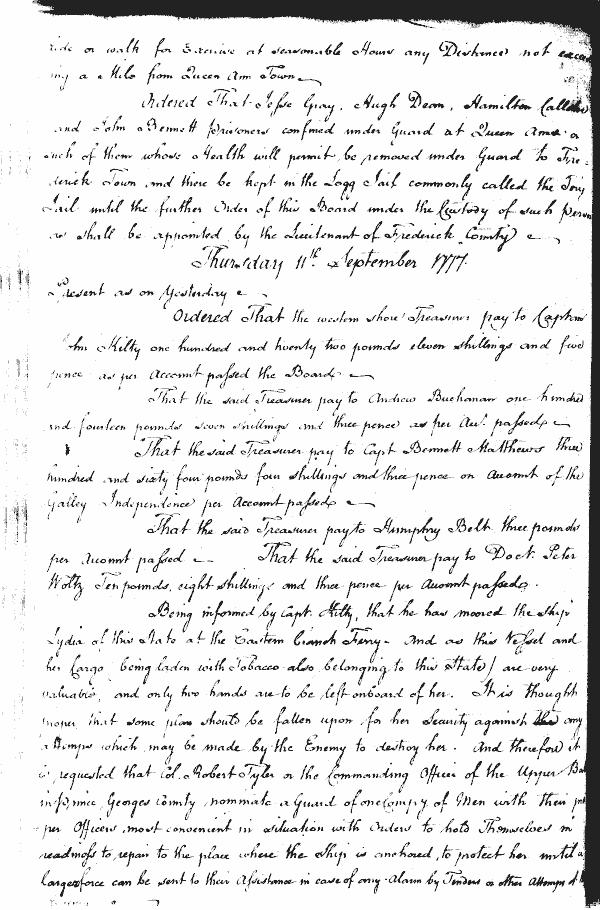 ride or walk for Exercise at seasonable Hours any Distance not exceed
ing a Mile from Queen Ann Town
Ordered That Jesse Gray, Hugh Dean, Hamilton
and John Bennett Prisoners confined under Guard at Queen Ann or
such of them whose Health will permit be removed under Guard to Fre-
derick Town and there be kept in the Logg Jail commonly called the Tory
Jail until the further Order of this Board under the Custody of such Person
as shall be appointed by the Lieutenant of Frederick County
Thursday 11th September 1777.
Present as on Yesterday
Ordered That the western shore Treasurer pay to Captain
John Kilty one hundred and twenty two pounds eleven shillings and five
pence as per Account passed the Board
That the said Treasurer pay to Andrew Buchanan one hundred
and fourteen pounds seven shillings and three pence as per Acct. passed
That the said Treasurer pay to Capt Bennett Matthews three
hundred and sixty four pounds four shillings and three pence on Account of the
Galley Independence per Account passed
That the said Treasurer pay to Humphry Belt three pounds
per Account passed That the said Treasurer pay to Doct. Peter
Woltz Ten pounds, eight shillings and three pence per Account passed.
Being informed by Capt. Kilty, that he has moored the ship
Lydia of this State at the Eastern branch Ferry - And as this Vessel and
her Cargo (being laden with Tobacco also belonging to this State) are very
valuable, and only two hands are to be left onboard of her. It is thought
proper that some plan should be fallen upon for her Security against any
attempts which may be made by the Enemy to destroy her. And therefore it
is requested that Col. Robert Tyler or the Commanding Officer of the Upper Bat
in Prince Georges County nominate a Guard of one Compy of Men with their pro
per Officers most convenient in situation with Orders to hold Themselves in
readiness to repair to the place where the Ship is anchored, to protect her until a
larger force can be sent to their Assistance in case of any Alarm by Tenders or other Attempts of